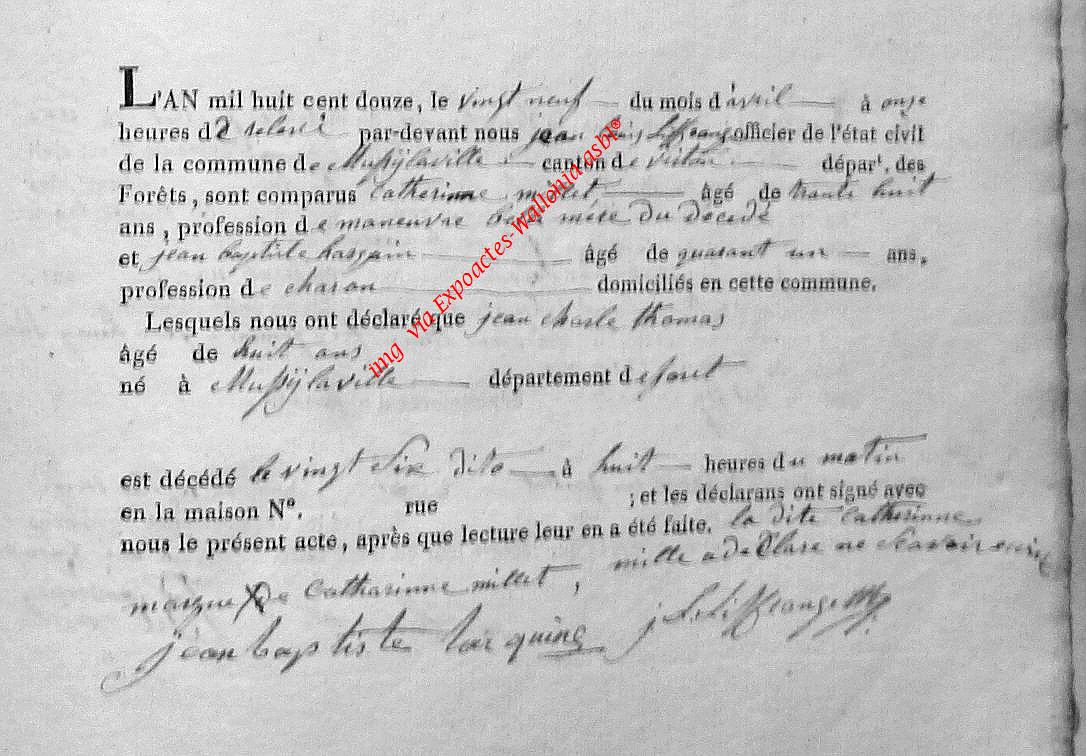 L'AN mil huit cent douze, le vingt neuf du mois d'avril à onze
heures de relevé par-devant nous jean officier de l'état civil
de la commune de Mussÿlaville canton de virton départ. des
Forêts, sont comparus Catherinne millet âgé de trante huit
ans, profession de maneuvre belle mére du décédé
et jean baptiste âgé de quarant un ans,
profession de charon domiciliés en cette commune.
Lesquels nous ont déclaré que jean charle thomas
âgé de huit ans
né à Mussÿlaville département de forêt
est décédé le vingt six dito à huit heures du matin
en la maison N°. rue ; et les déclarans ont signé avec
nous le présent acte, après que lecture leur en a été faite. la dite Catherinne
mille a déClare ne scavoir ecrire
marque X De Catharinne millet,
jean baptiste
img via Expoactes-Wallonia asbl®